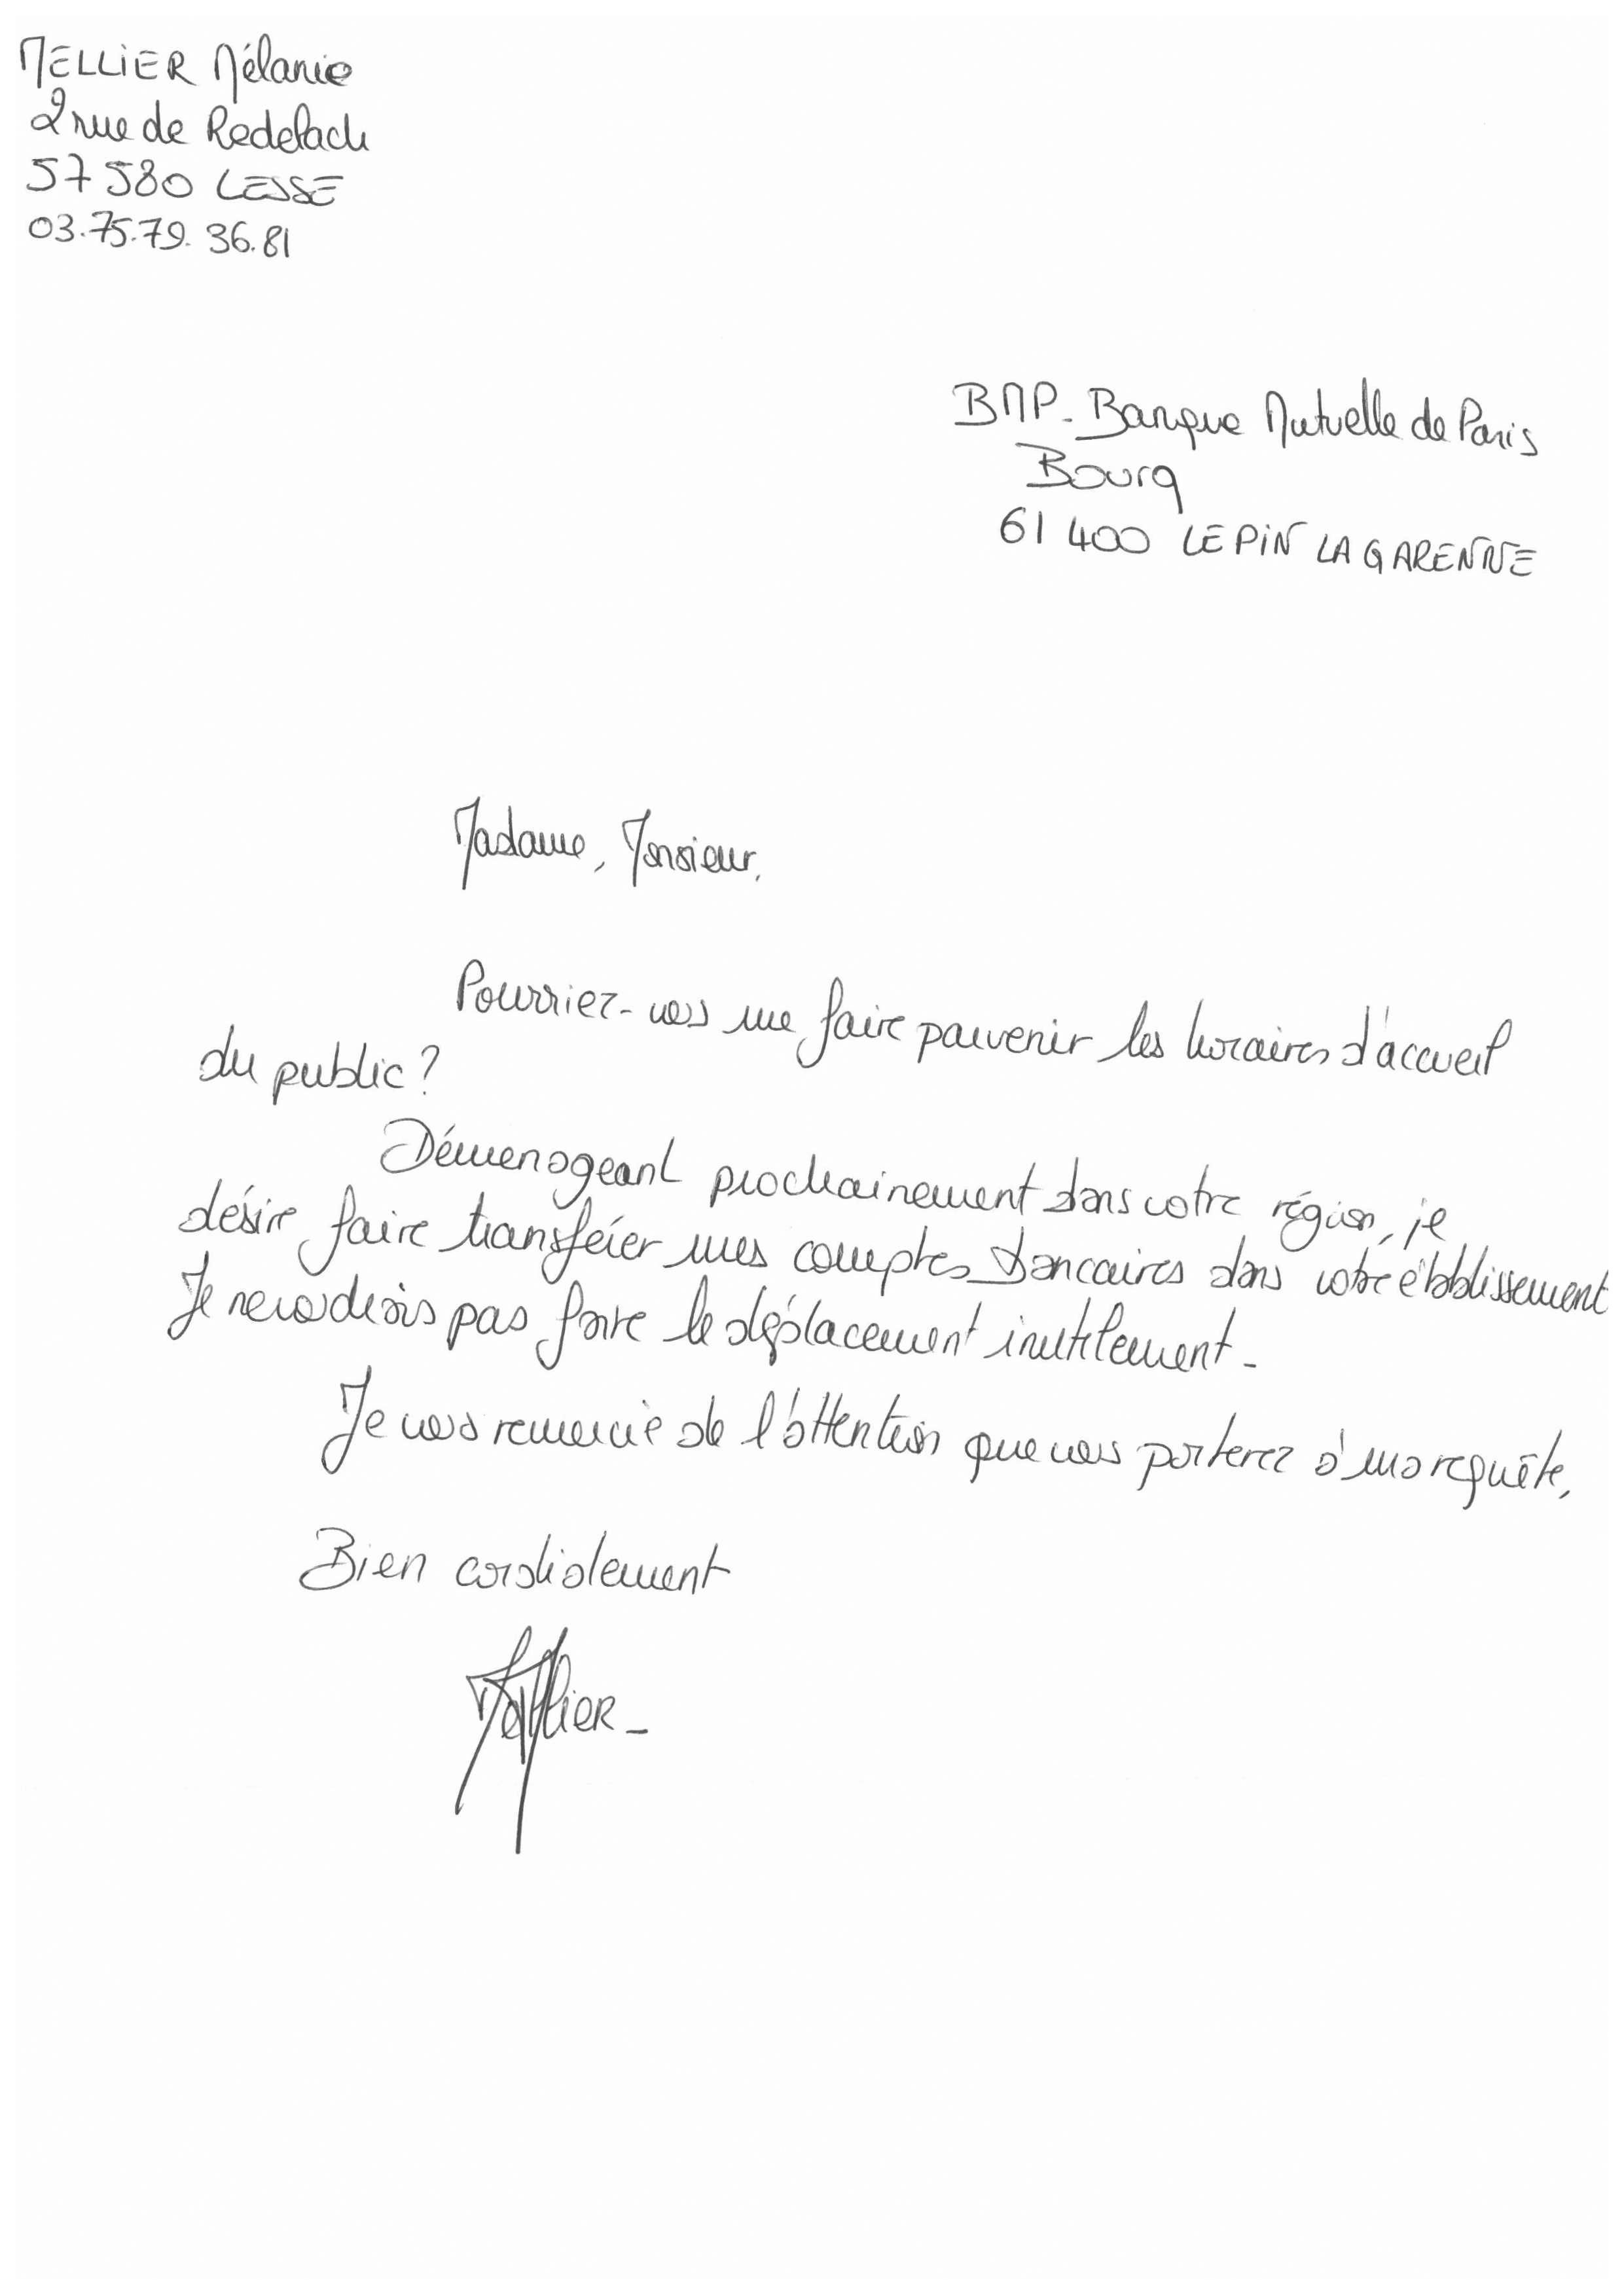 MELLIER Mélanie
2 rue de Redelach
57 580 LESSE
03.75.79.36.81
BMP - Banque Mutuelle de Paris
Bourg
61 400 LE PIN LA GARENNE
Madame, Monsieur,
Pourriez-vous me faire parvenir les horaires d'accueil
du public ?
Déménageant prochainement dans votre région, je
désire faire transférer mes comptes bancaires dans votre établissement
Je ne voudrais pas faire le déplacement inutilement -
Je vous remercie de l'attention que vous porterez à ma requête,
Bien cordialement
Mellier -